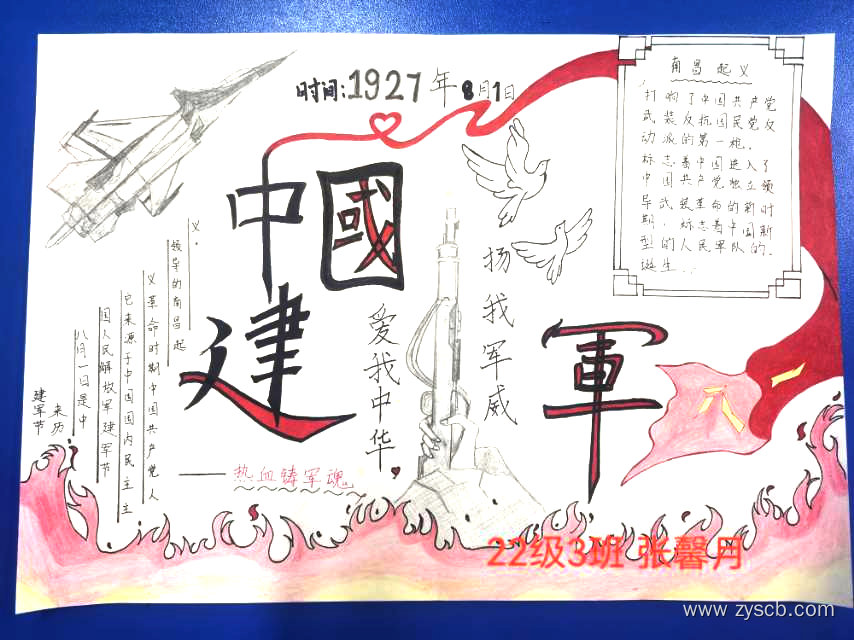 时间:1927年8月1日
中國
建
軍
建军节
来历
八月一日是中
国人民解放军建军节
它来源于中国国内民主主
义革命时期中国共产党人
领导的南昌起
义。
爱我中华
扬我军威
热血铸军魂
南昌起义
打响了中国共产党
武装反抗国民党反
动派的第一枪.
标志着中国进入了
中国共产党独立领
导武装革命的新时
期,标志着中国新
型的人民军队的.
诞生...
八一
22级3班 张馨月
www.zyscb.com